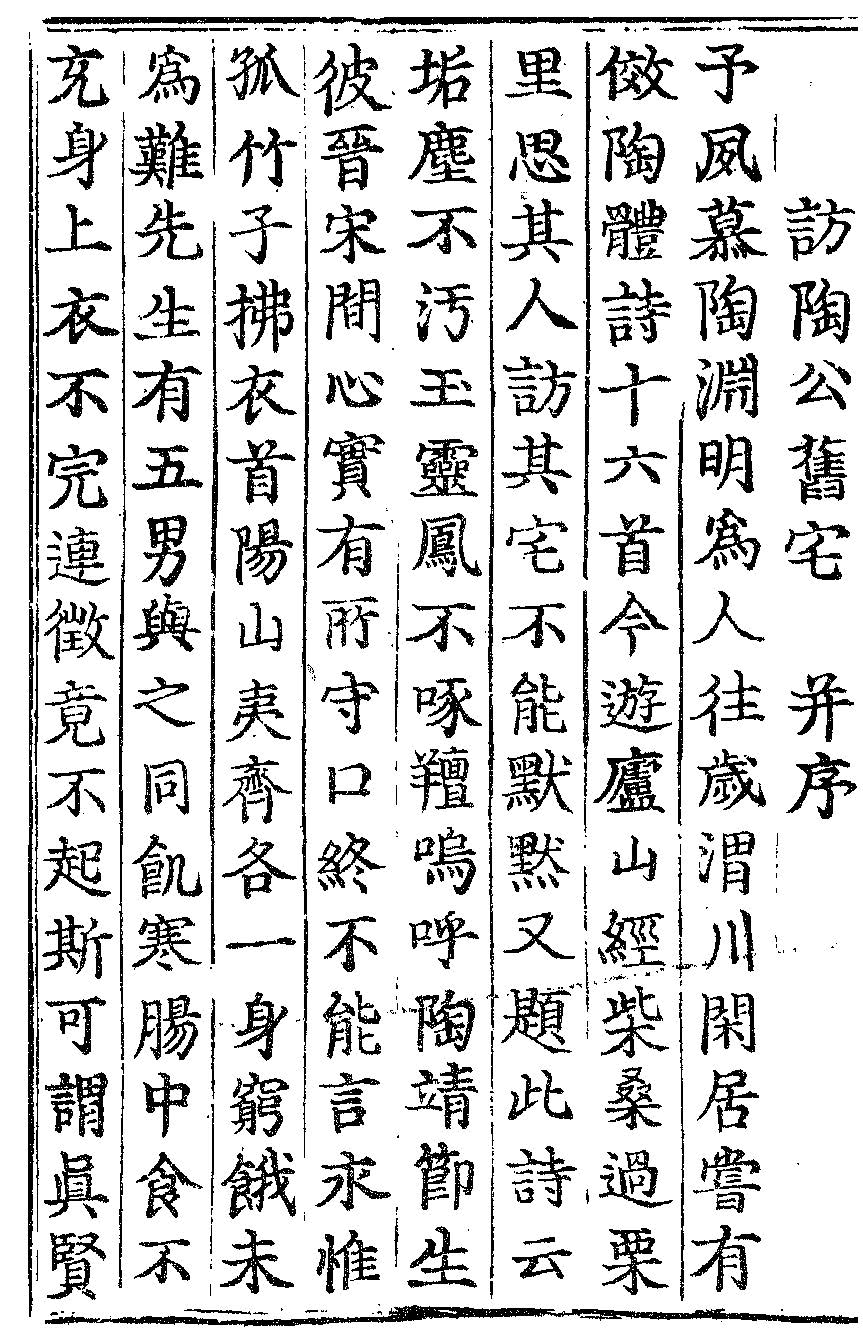 訪陶公舊宅 并序
予夙慕陶淵明爲人往歲渭川閑居嘗有
傚陶體詩十六首今遊廬山經柴桑過栗
里思其人訪其宅不能默默又題此詩云
垢塵不汚玉靈鳳不啄羶嗚呼陶靖節生
彼晉宋間心實有所守口終不能言永惟
孤竹子拂衣首陽山夷齊各一身窮餓未
爲難先生有五男與之同飢寒腸中食不
充身上衣不完連徵竟不起斯可謂眞賢